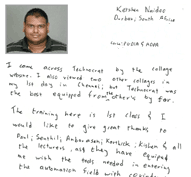 Keeshen Naidoo
Durban, South Africa
I came across Technocrat by the college
website. I also viewed two other colleges in
my 1st day in Chennai, but Technocrat was
the best equipped from the other's by far.
The training here is 1st class & I
would like to give great thanks to
Paul, Senthil, Anbarasan, Karthick, Kishen & all
the lecturers, as they have equiped
me wish the tools needed in entering
the automation field with